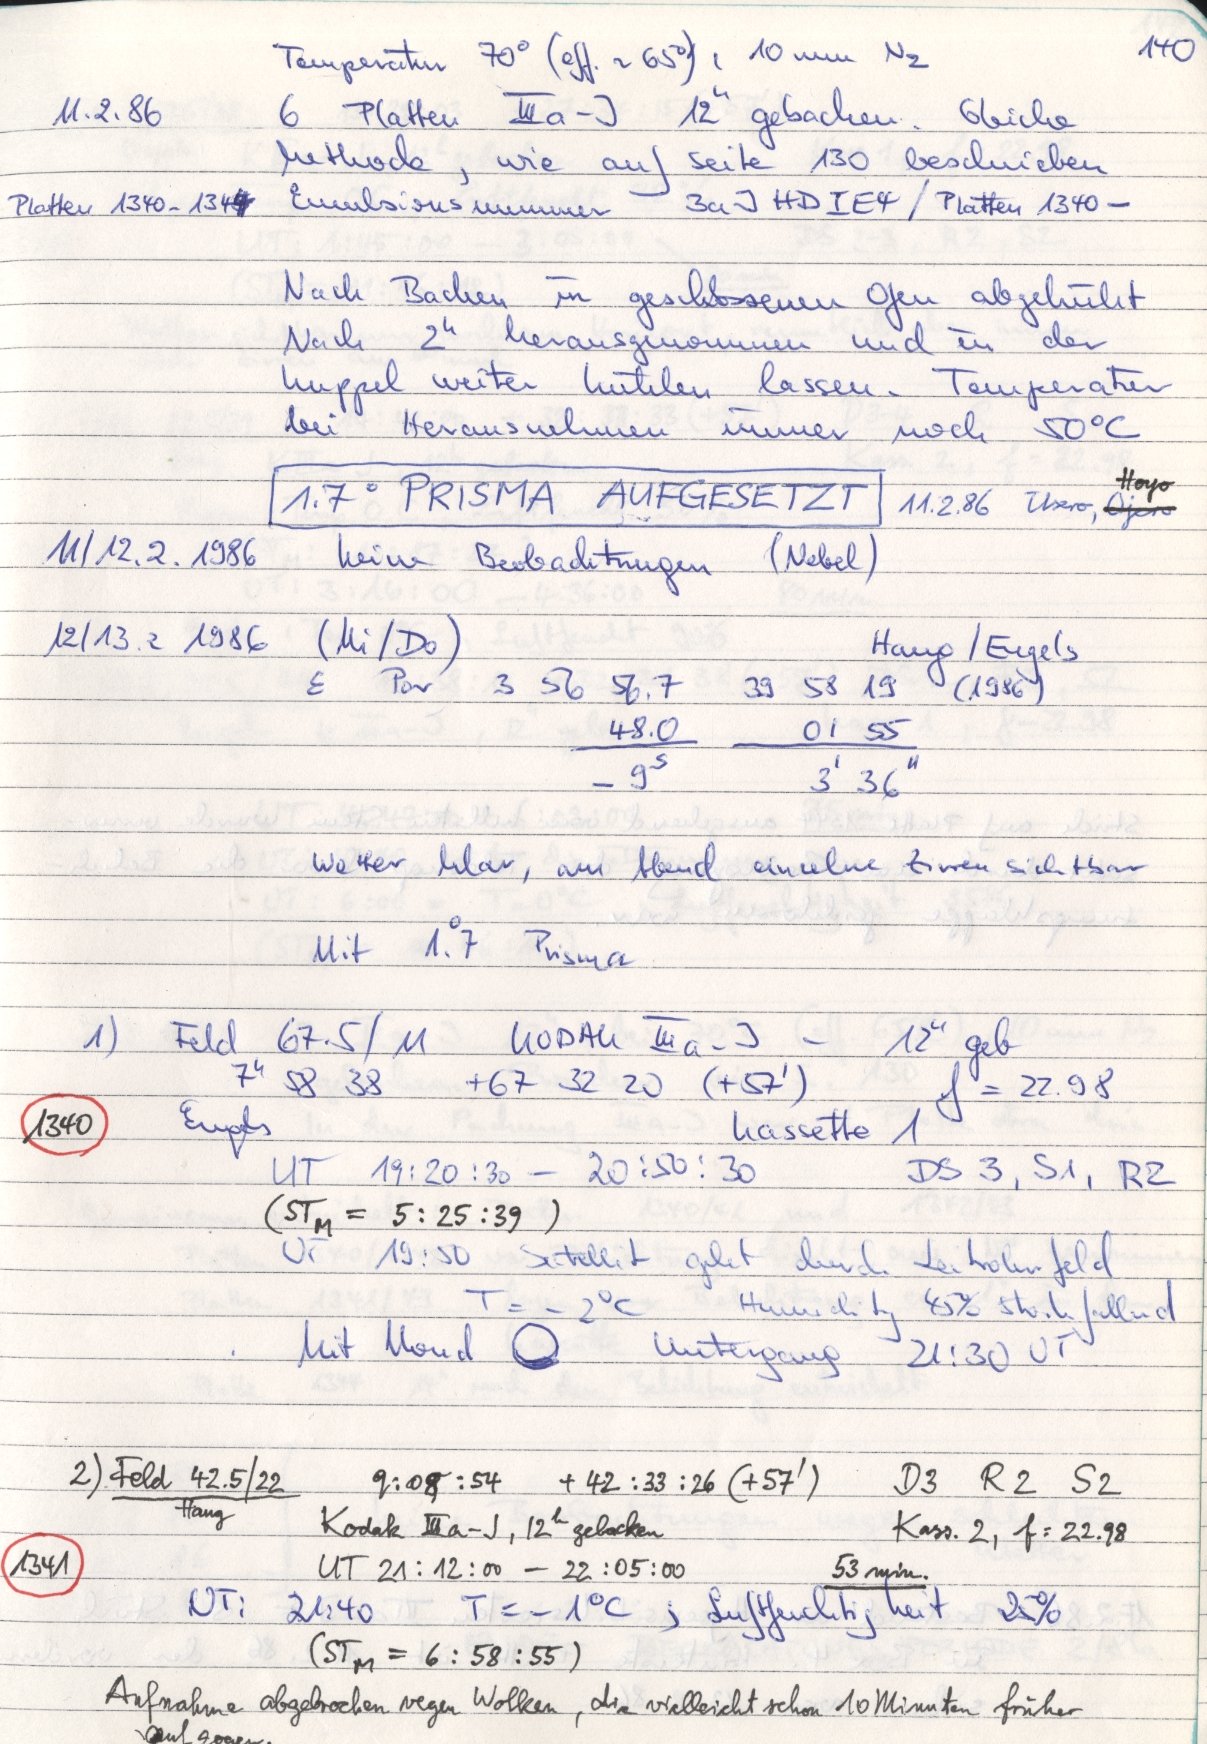 Temperatur 70° (eff. ~ 65°), 10 mm N2
140
11.2.86 6 Platten IIIa-J 12h gebacken. Gleiche
Methode, wie auf Seite 130 beschrieben
Platten 1340-1344 Emulsionsnummer 3aJ HDIE4 / Platten 1340-
Nach Backen in geschlossenen Ofen abgekühlt
Nach 2h herausgenommen und in der
Kuppel weiter kühlen lassen. Temperatur
bei Herausnehmen immer noch 50°C
1.7° PRISMA AUFGESETZT 11.2.86 Thero, Hoyo
11/12.2.1986 Keine Beobachtungen (Nebel)
12/13.2 1986 (Mi/Do) Haug/Engels
ε Per 3 56 56.7 39 58 19 (1986)
48.0 01 55
-9s 3' 36"
Wetter klar, am Abend einzelne Zirren sichtbar
Mit 1.°7 Prisma
1) Feld 67.5/11 KODAK IIIa-J - 12h geb
7h 58 38 +67 32 20 (+57') f = 22.98
1340 Engels Kassette 1
UT 19:20:30 - 20:50:30 DS 3, S1, R2
(STM = 5:25:39)
UT 19:50 Satellit geht durch Leitrohrfeld
T = -2°C Humidity 45% stark fallend
Mit Mond Untergang 21:30 UT
2) Feld 42.5/22 9:08:54 +42:33:26 (+57') D3 R2 S2
Haug Kodak IIIa-J, 12h gebacken Kass. 2, f = 22.98
1341 UT 21:12:00 - 22:05:00 53 min.
UT: 21:40 T = -1°C ; Luftfeuchtigkeit 25%
(STM = 6:58:55)
Aufnahme abgebrochen wegen Wolken, die vielleicht schon 10 Minuten früher